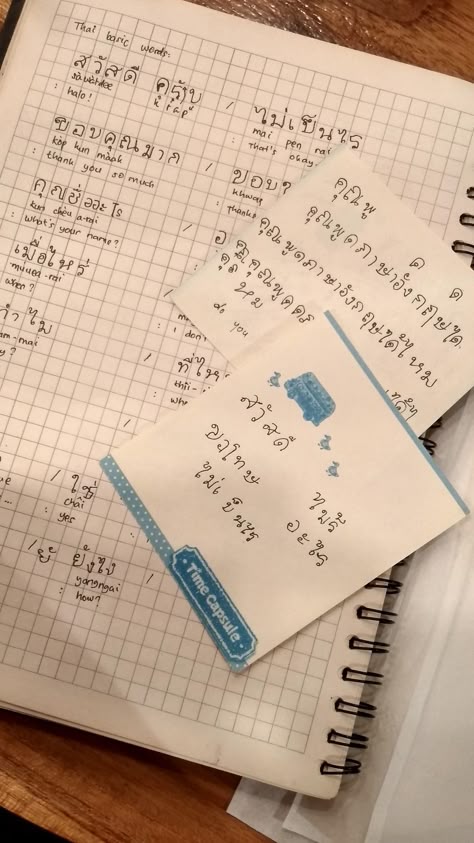 Thai basic words:
สวัสดี ครับ /
sa wat dee k r a p
: halo!
ไม่เป็นไร
mai pen rai
: That's okay
ขอบคุณมาก /
kop kun maak
: thank you so much
ขอบ
khwap
: Thanks
คุณชื่ออะไร /
kun cheu a-rai
: what's your name?
เมื่อไหร่ /
mueua-rai
when?
ทำไม
am-mai
y?
: I don't
/ ที่ไห
thii-
: whe
/ ใช่
chai
: yes
/ ยังไง /
yangngai
: how?
คุณพู
คุณพูดภาษาอังกฤษได้
คุณพูดภาษาอังกฤษได้ไหม
คุณพูด
do you
สวัสดี
ขอโทษ
ไม่เป็นไร
อะไร
Time Capsule